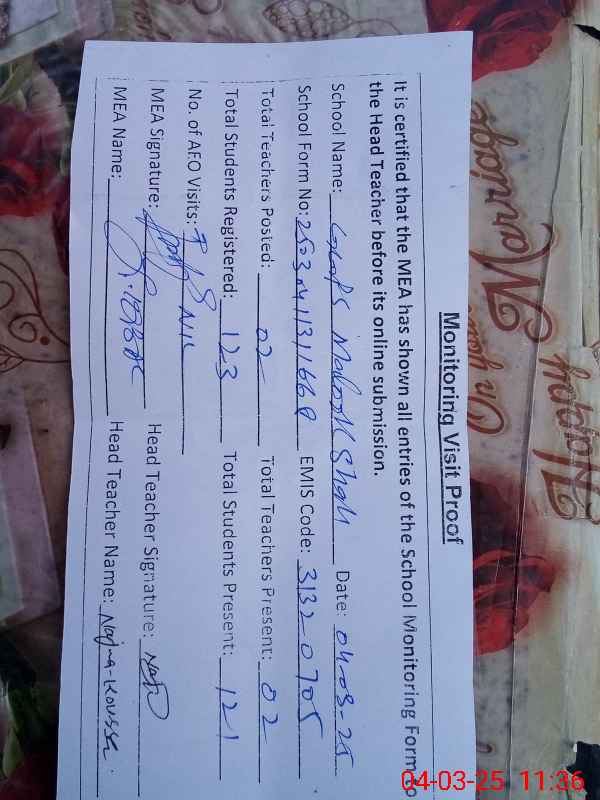 Monitoring Visit Proof
It is certified that the MEA has shown all entries of the School Monitoring Form to
the Head Teacher before its online submission.
School Name: GGPS Mabook Shah Date: 04-03-25
School Form No: EMIS Code: 31320705
Total Teachers Posted: 02 Total Teachers Present: 02
Total Students Registered: 123 Total Students Present: 121
No. of AEO Visits: NIL
MEA Signature: Head Teacher Signature:
MEA Name: Head Teacher Name: Najma Kousar
Happy
Marriage
04-03-25 11:36